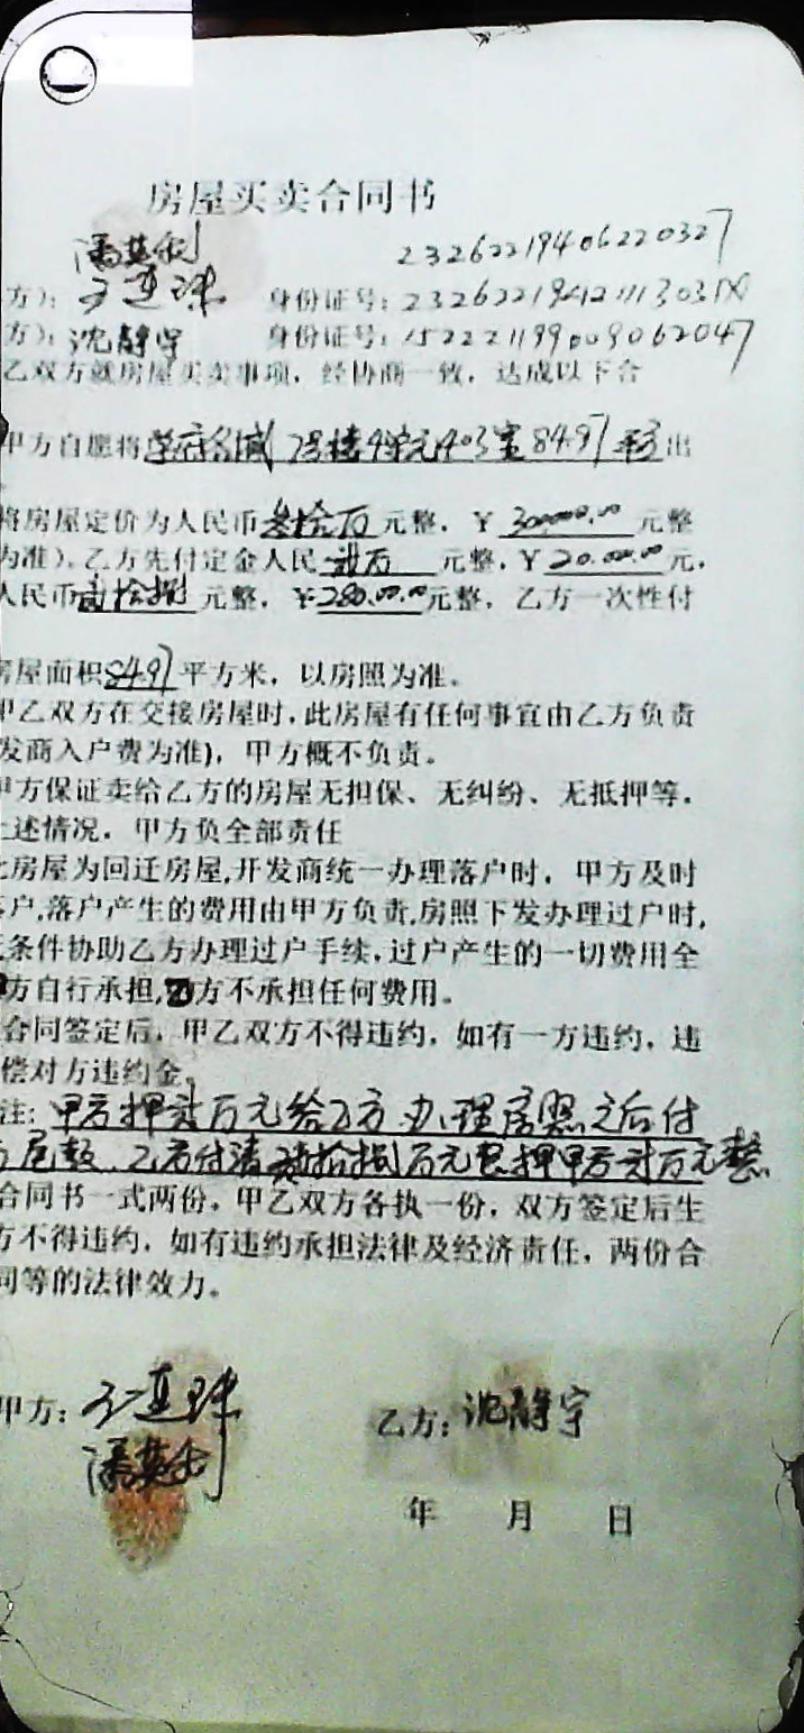 房屋买卖合同书
潘英利 23262219406220327
方): 于连球 身份证号:
方): 沈静宇 身份证号: 152221199009062047
乙双方就房屋买卖事项，经协商一致，达成以下合
甲方自愿将学府名城 7号楼4单元403室84.97平方出
将房屋定价为人民币叁拾万元整，￥300000.00元整
为准)，乙方先付定金人民 贰万 元整，￥20.000.00元，
人民币贰拾捌 元整，￥280.00.00元整，乙方一次性付
房屋面积84.97平方米，以房照为准。
甲乙双方在交接房屋时，此房屋有任何事宜由乙方负责
发商入户费为准)，甲方概不负责。
甲方保证卖给乙方的房屋无担保、无纠纷、无抵押等，
上述情况，甲方负全部责任
房屋为回迁房屋,开发商统一办理落户时，甲方及时
户,落户产生的费用由甲方负责,房照下发办理过户时,
条件协助乙方办理过户手续,过户产生的一切费用全
方自行承担,方不承担任何费用。
合同签定后，甲乙双方不得违约，如有一方违约，违
偿对方违约金。
注: 甲方押贰万元给乙方 办理房照之后付
尾款．乙方付清贰拾捌万元整押甲方贰万元整
合同书一式两份，甲乙双方各执一份，双方签定后生
方不得违约，如有违约承担法律及经济责任，两份合
同等的法律效力。
甲方: 于连球 乙方: 沈静宇
潘英利
年 月 日